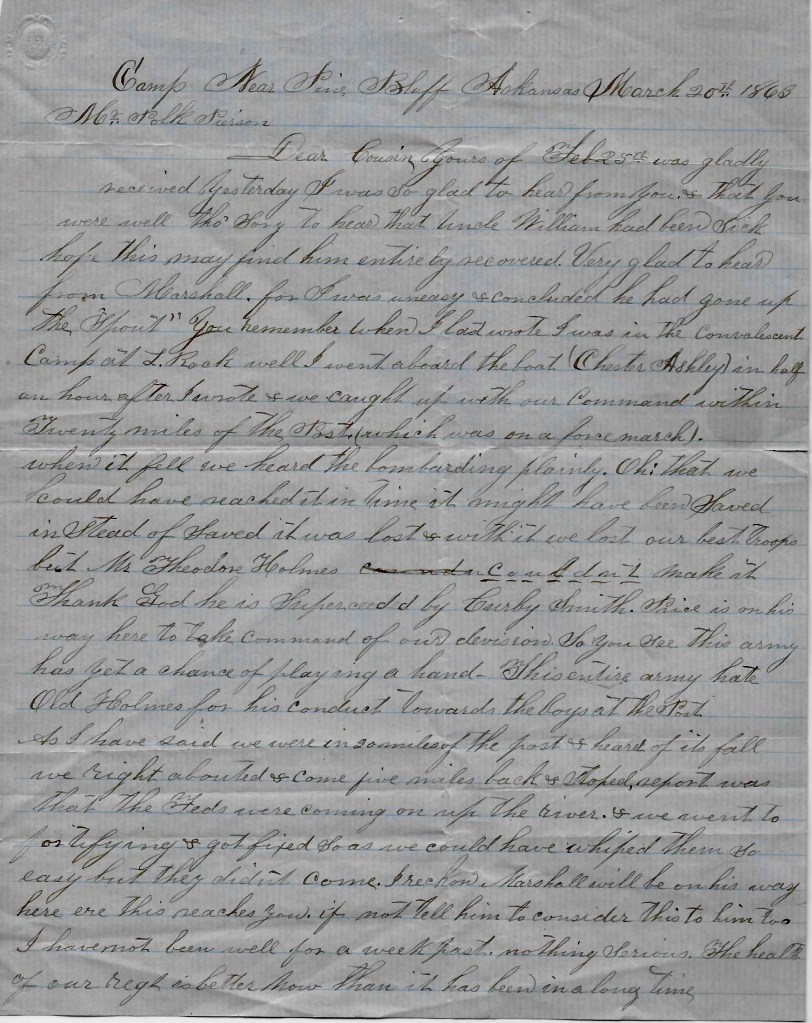 Camp Near Pine Bluff Arkansas March 20th 1863
Mr. Polk Pierson
Dear Cousin Yours of Feb 25th was gladly
received Yesterday I was so glad to hear from you. & that You
were well tho' Sory to hear that Uncle William had been Sick
hope this may find him entireby recovered. Very glad to hear
from Marshall. for I was uneasy & concluded he had gone up
the "Spout" You remember when I last wrote I was in the Convalescent
Camp at L. Rock well I went aboard the boat (Chester Ashley) in half
an hour after I wrote & we caught up with our Command within
Twenty miles of the Post. (which was on a force march).
when it fell we heard the bombarding plainly. Oh! that we
could have reached it in time it might have been Saved
in stead of Saved it was lost & with it we lost our best troops
but Mr Theodore Holmes couldn't make it
Thank God he is Superceed'd by Curby Smith. Price is on his
way here to take command of our devision. So you see this army
has yet a chance of playing a hand- This entire army hate
Old Holmes for his conduct towards the boys at the Post
As I have said we were in 20 miles of the post & heard of its fall
we right abouted & come five miles back & stoped, report was
that the Feds were coming on up the river. & we went to
fortifying & got fixed so as we could have whiped them so
easy but they didn't come. I reckon Marshall will be on his way
here ere this reaches you. if not tell him to consider this to him too
I have not been well for a week past. nothing serious. The health
of our regt is better now than it has been in a long time